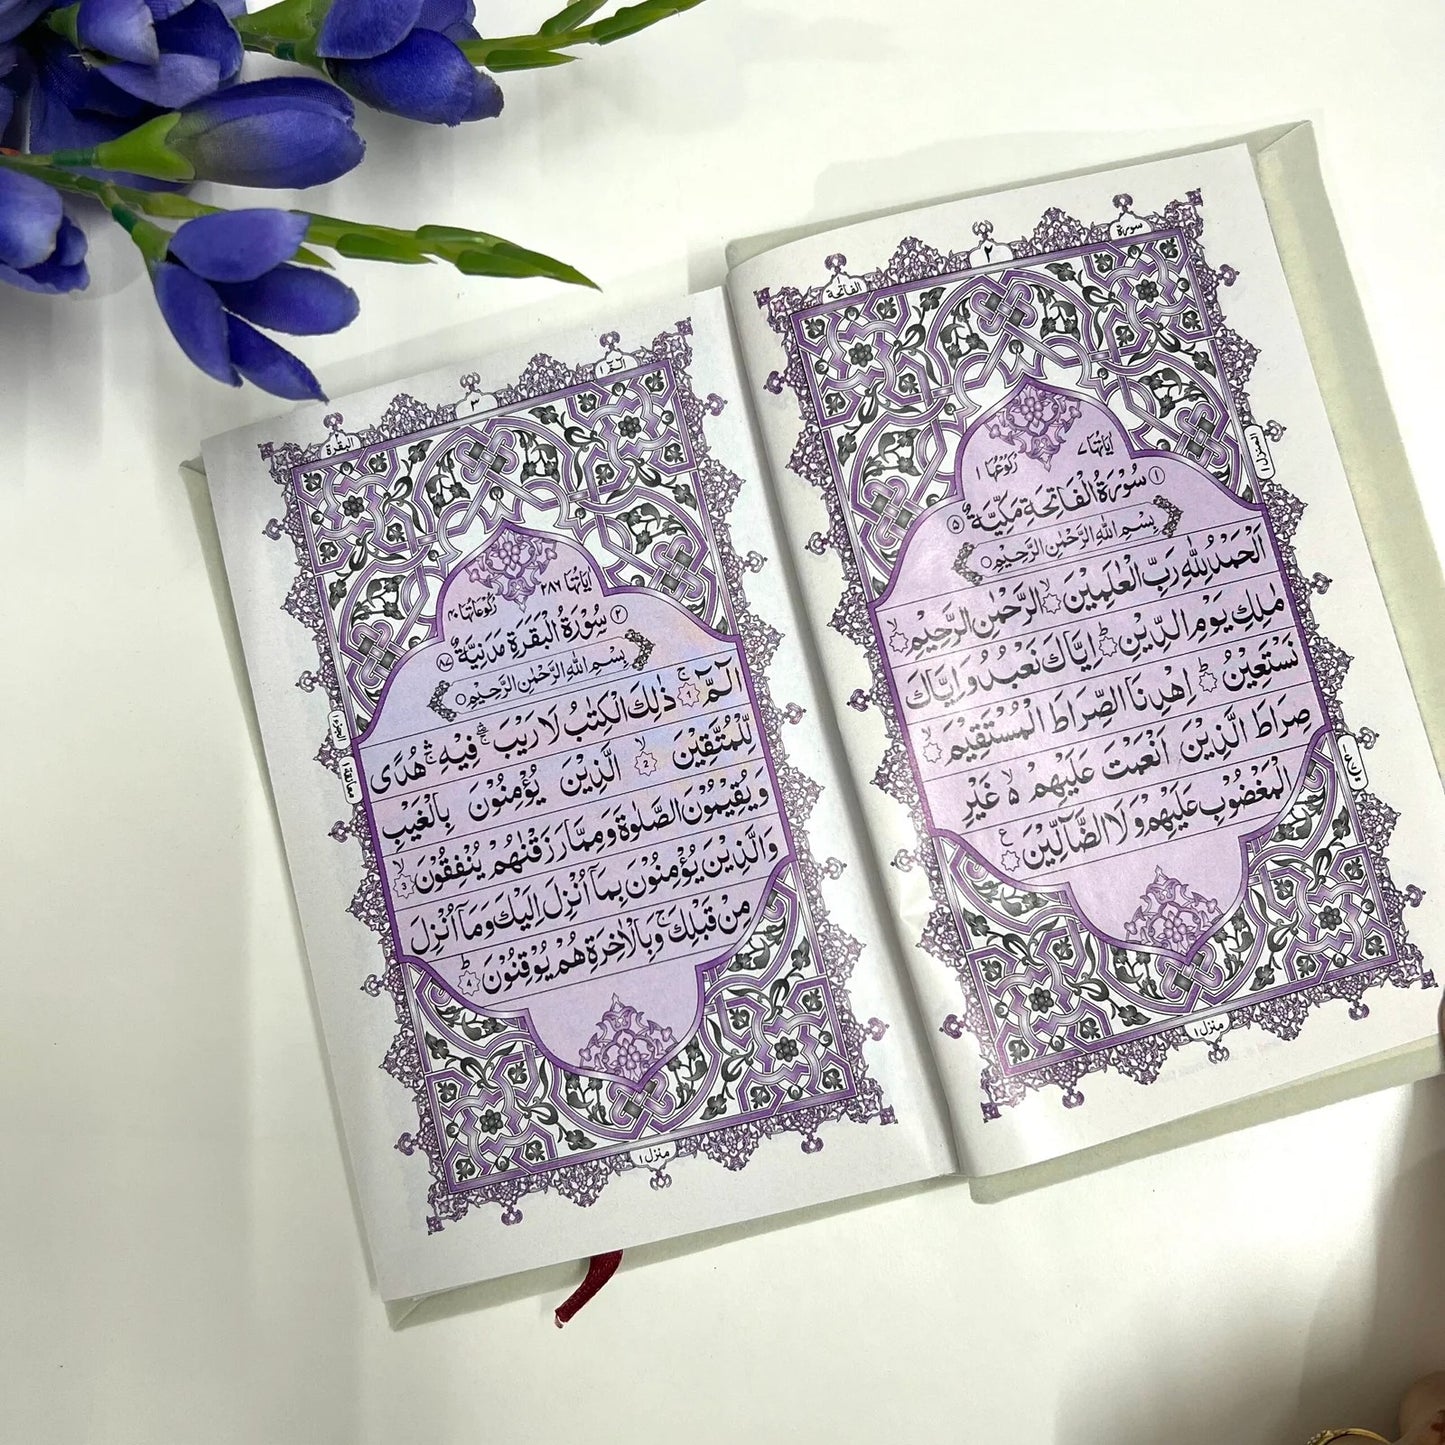 سورة
٢
الفاتحة
اٰيَاتُهَا ٧
رُكُوْعُهَا ١
١ سُوْرَةُ الْفَاتِحَةِ مَكِّيَّةٌ ٥
بِسْمِ اللّٰهِ الرَّحْمٰنِ الرَّحِيْمِ
اَلْحَمْدُ لِلّٰهِ رَبِّ الْعٰلَمِيْنَ ۙ الرَّحْمٰنِ الرَّحِيْمِ ۙ
مٰلِكِ يَوْمِ الدِّيْنِ ؕ اِيَّاكَ نَعْبُدُ وَ اِيَّاكَ
نَسْتَعِيْنُ ؕ اِهْدِنَا الصِّرَاطَ الْمُسْتَقِيْمَ ۙ
صِرَاطَ الَّذِيْنَ اَنْعَمْتَ عَلَيْهِمْ ۙ۵ غَيْرِ
الْمَغْضُوْبِ عَلَيْهِمْ وَ لَا الضَّآلِّيْنَ ع
المنزل ١
منزل ١
اٰلٓمّٓ ١
٣
البقرة
اٰيَاتُهَا ٢٨٦
رُكُوْعَاتُهَا ٤٠
٢ سُوْرَةُ الْبَقَرَةِ مَدَنِيَّةٌ ٨٧
بِسْمِ اللّٰهِ الرَّحْمٰنِ الرَّحِيْمِ
الٓمّٓ ۚ ١ ذٰلِكَ الْكِتٰبُ لَا رَيْبَ ۛۖ فِيْهِ ۛۚ هُدًى
لِّلْمُتَّقِيْنَ ۙ ٢ الَّذِيْنَ يُؤْمِنُوْنَ بِالْغَيْبِ
وَ يُقِيْمُوْنَ الصَّلٰوةَ وَ مِمَّا رَزَقْنٰهُمْ يُنْفِقُوْنَ ۙ ٣
وَ الَّذِيْنَ يُؤْمِنُوْنَ بِمَاۤ اُنْزِلَ اِلَيْكَ وَ مَاۤ اُنْزِلَ
مِنْ قَبْلِكَ ۚ وَ بِالْاٰخِرَةِ هُمْ يُوْقِنُوْنَ ؕ ٤
معانقة ١
منزل ١